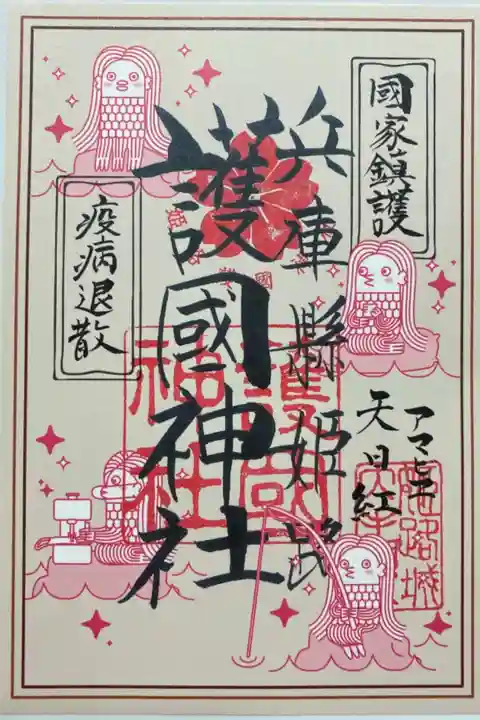 國家鎮護
アマビエ
天日紅
兵庫縣姫路
護國神社
疫病退散
護國
神社